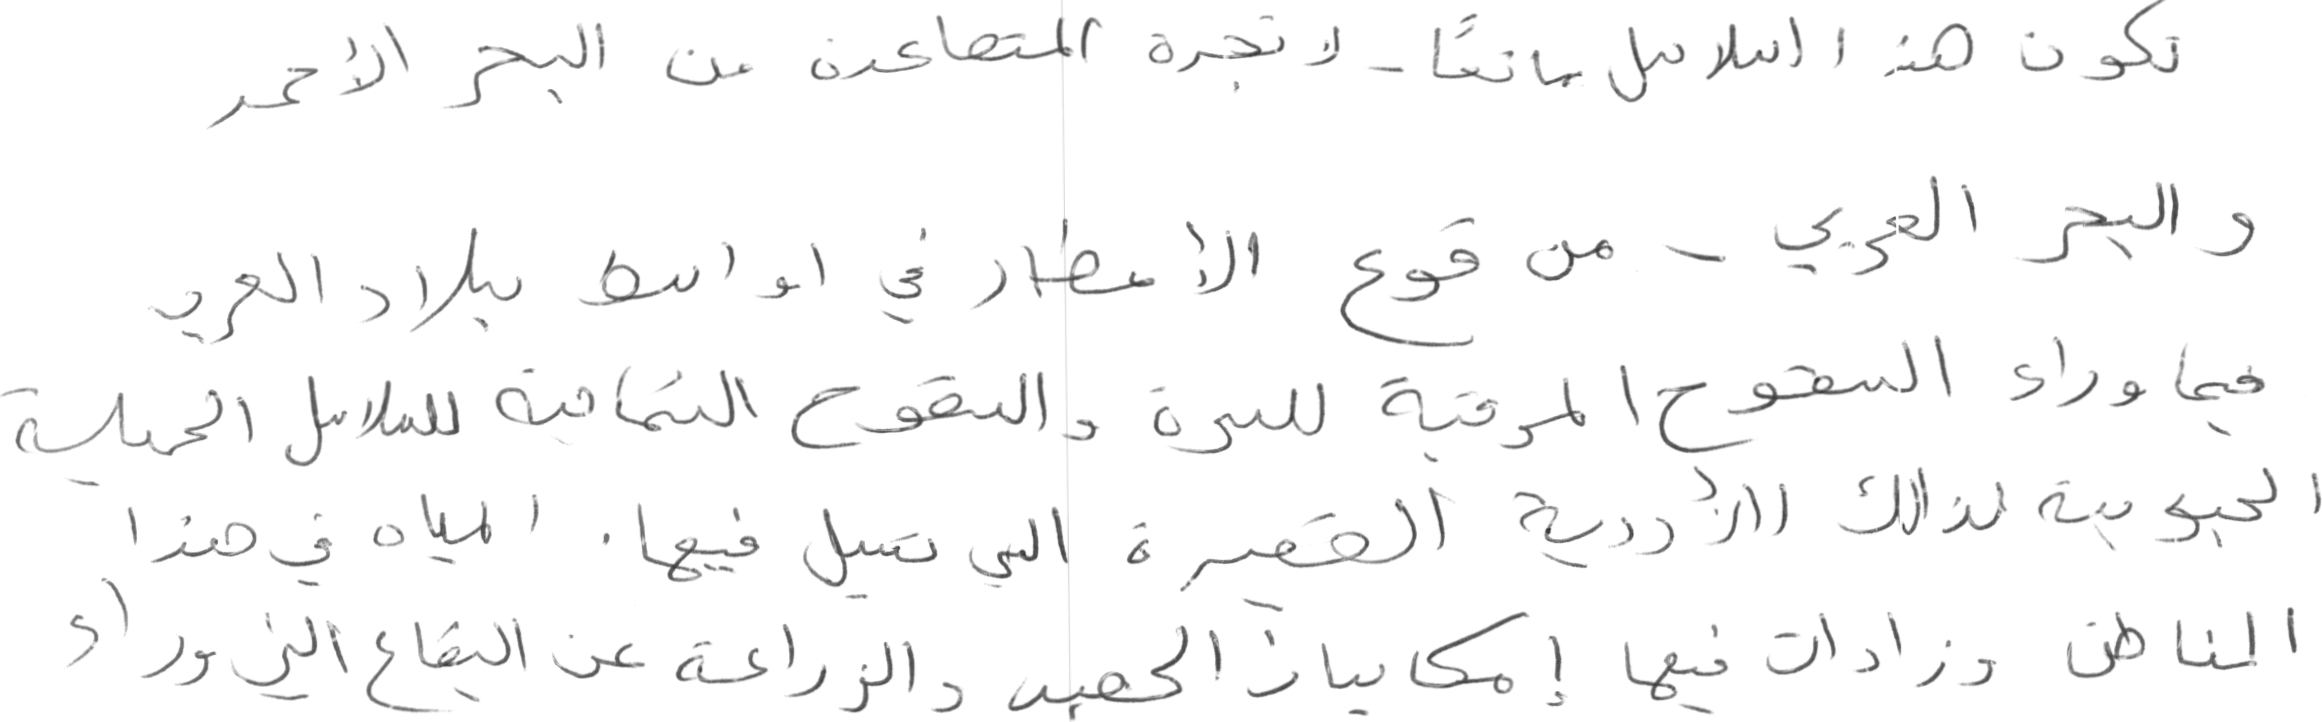 تكون هذه السلاسل مانعًا - لا تجرة المتصاعدة من البحر الأحمر
و البحر العربي - من قوع الأمطار في اواسط بلاد العرب
فيما وراء السفوح المرقية للسرة والسفوح الشمالية للسلاسل الجبلية
الجنوبية لذلك الأودية القصيرة التي تسيل فيها. المياه في هذا
المناطق وزادات فيها إمكانيات الحصيد والزراعة عن البقاع التي وراء